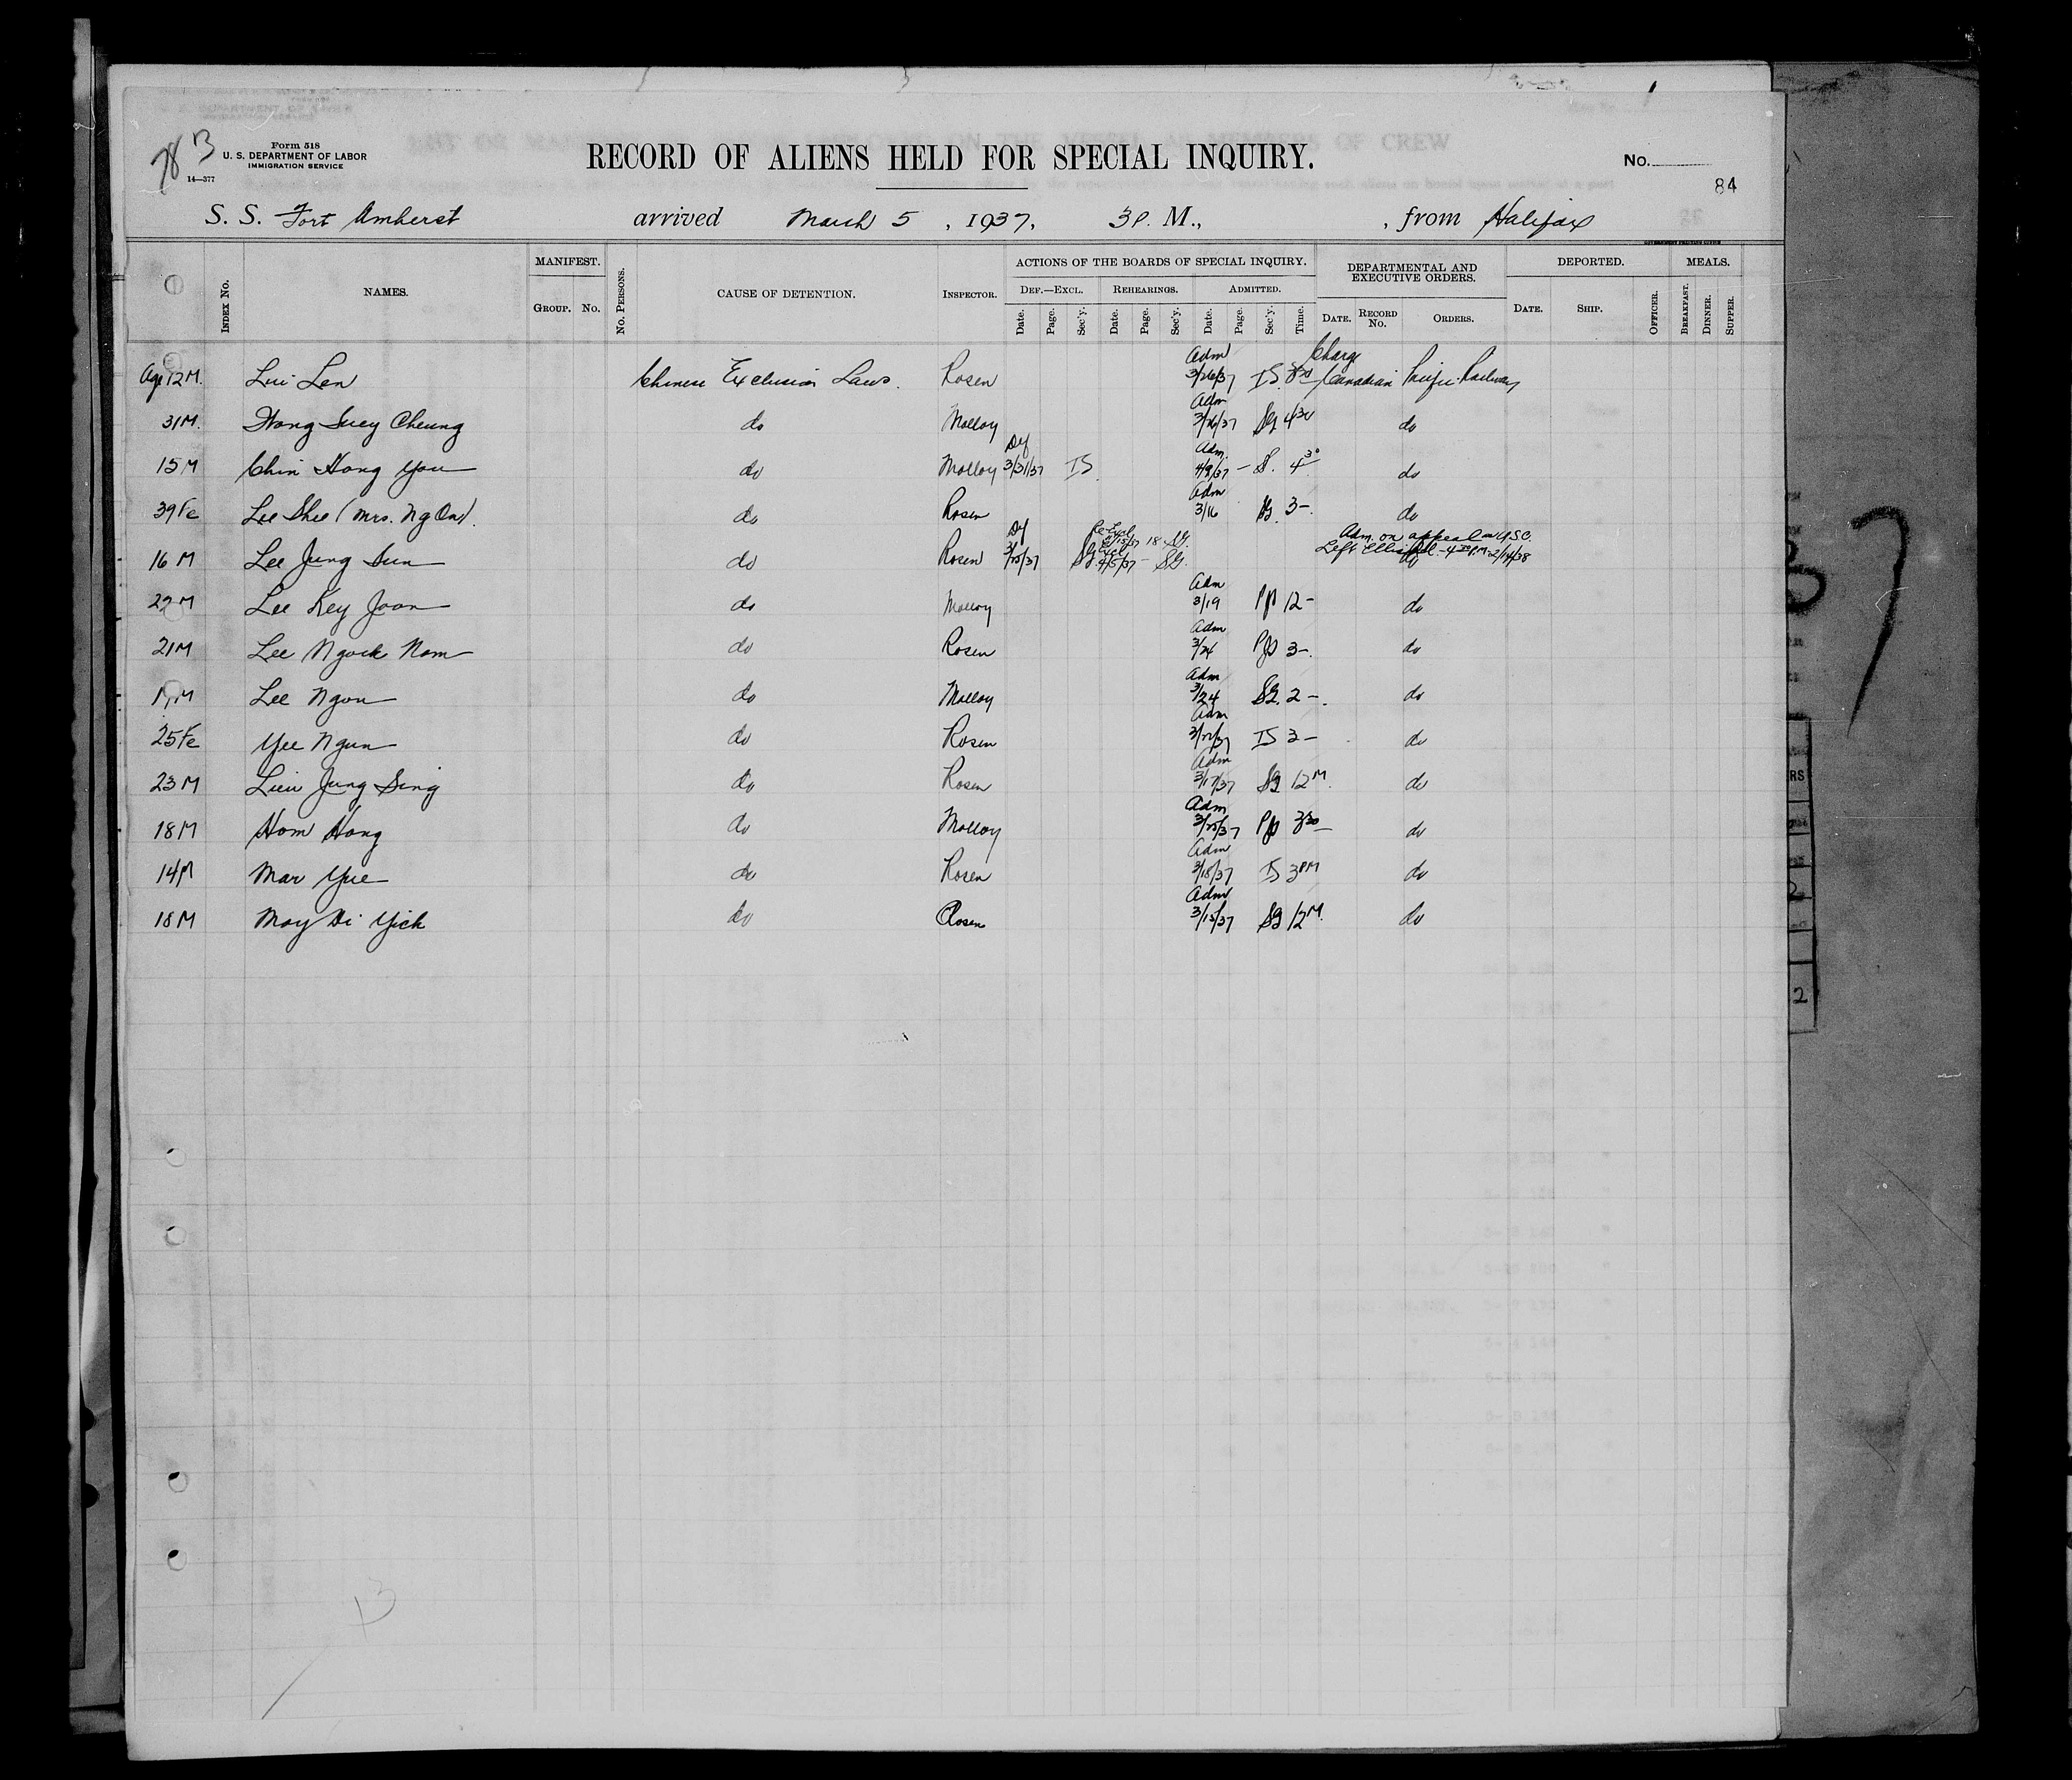 78 B
Form 518
U. S. DEPARTMENT OF LABOR
IMMIGRATION SERVICE
14—377
RECORD OF ALIENS HELD FOR SPECIAL INQUIRY.
No.
84
S. S. Fort Amherst arrived March 5, 1937, 3 P. M., , from Halifax
INDEX No. NAMES. MANIFEST. GROUP. No. No. PERSONS. CAUSE OF DETENTION. INSPECTOR. ACTIONS OF THE BOARDS OF SPECIAL INQUIRY. DEF.—EXCL. Date. Page. Sec'y. REHEARINGS. Date. Page. Sec'y. ADMITTED. Date. Page. Sec'y. Time. DEPARTMENTAL AND EXECUTIVE ORDERS. DATE. RECORD No. ORDERS. DEPORTED. DATE. SHIP. OFFICER. MEALS. BREAKFAST. DINNER. SUPPER.
Age 12 M. Lui Len Chinese Exclusion Laws. Rosen Adm 3/26/37 IS Charge Canadian Pacific Railway
31 M. Suey Cheung do Molloy Adm 3/26/37 SG 4 30 do
15 M Chin Hong You do Molloy Def 3/31/37 IS Adm 4/9/37 — S. 4 30 do
39 Fe Lee Shee (Mrs. Ng On). do Rosen Adm 3/16 SG 3—. do
16 M Lee Jung Sun do Rosen Def SG Excl 4/5/37 — SG. 18 SG. Adm. on appeal Left Ellis 2/14/38 do
22 M Lee Key Joon do Molloy Adm 3/19 12— do
21 M Lee Ngock Nom do Rosen Adm 3/24 3—. do
M Lee Ngon do Molloy Adm 3/24 SG. 2—. do
25 Fe Yee Ngun do Rosen Adm IS 3— do
23 M Lieu Jung Sing do Rosen Adm 3/17/37 SG 12 M. do
18 M Hom Hong do Molloy Adm 3/25/37 3 30 do
14 M Mar Yue do Rosen Adm 3/18/37 IS 3 PM do
18 M Moy Di Yick do Rosen Adm 3/15/37 SG 12 M. do
13